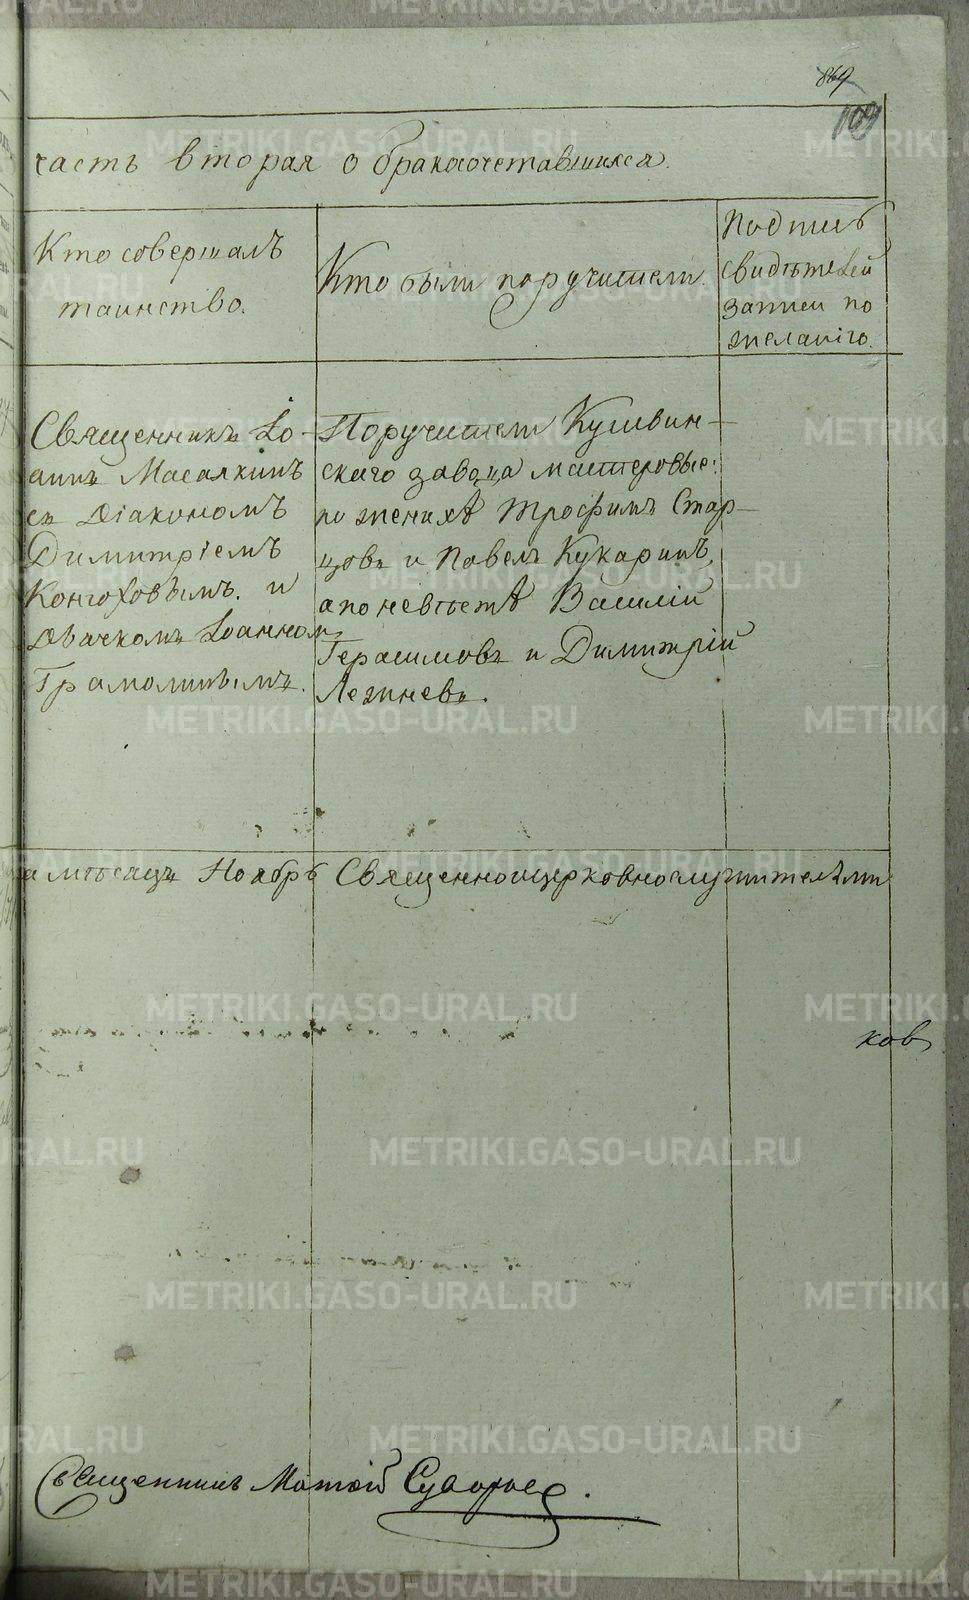 869
109
часть вторая о бракосочетавшихся.
Кто совершалъ
таинство.
Кто были поручители.
Подпись
свидѣтелей
записи по
желанію.
Священникъ Іо-
аннъ Масалкинъ
съ Діакономъ
Димитріемъ
Конюховымъ. и
Дьячкомъ Іоанном
Грамолинымъ.
Поручители Кушвин-
скаго завода мастеровые:
по женихѣ Трофимъ Стар-
цовъ и Павелъ Кукаринъ,
а по невѣстѣ Василій
Герасимовъ и Димитрій
Лежневъ.
а мѣсяцъ Ноябрь Священноцерковнослужителями
ков
Священникъ Матѳій Суворовъ.
METRIKI.GASO-URAL.RU